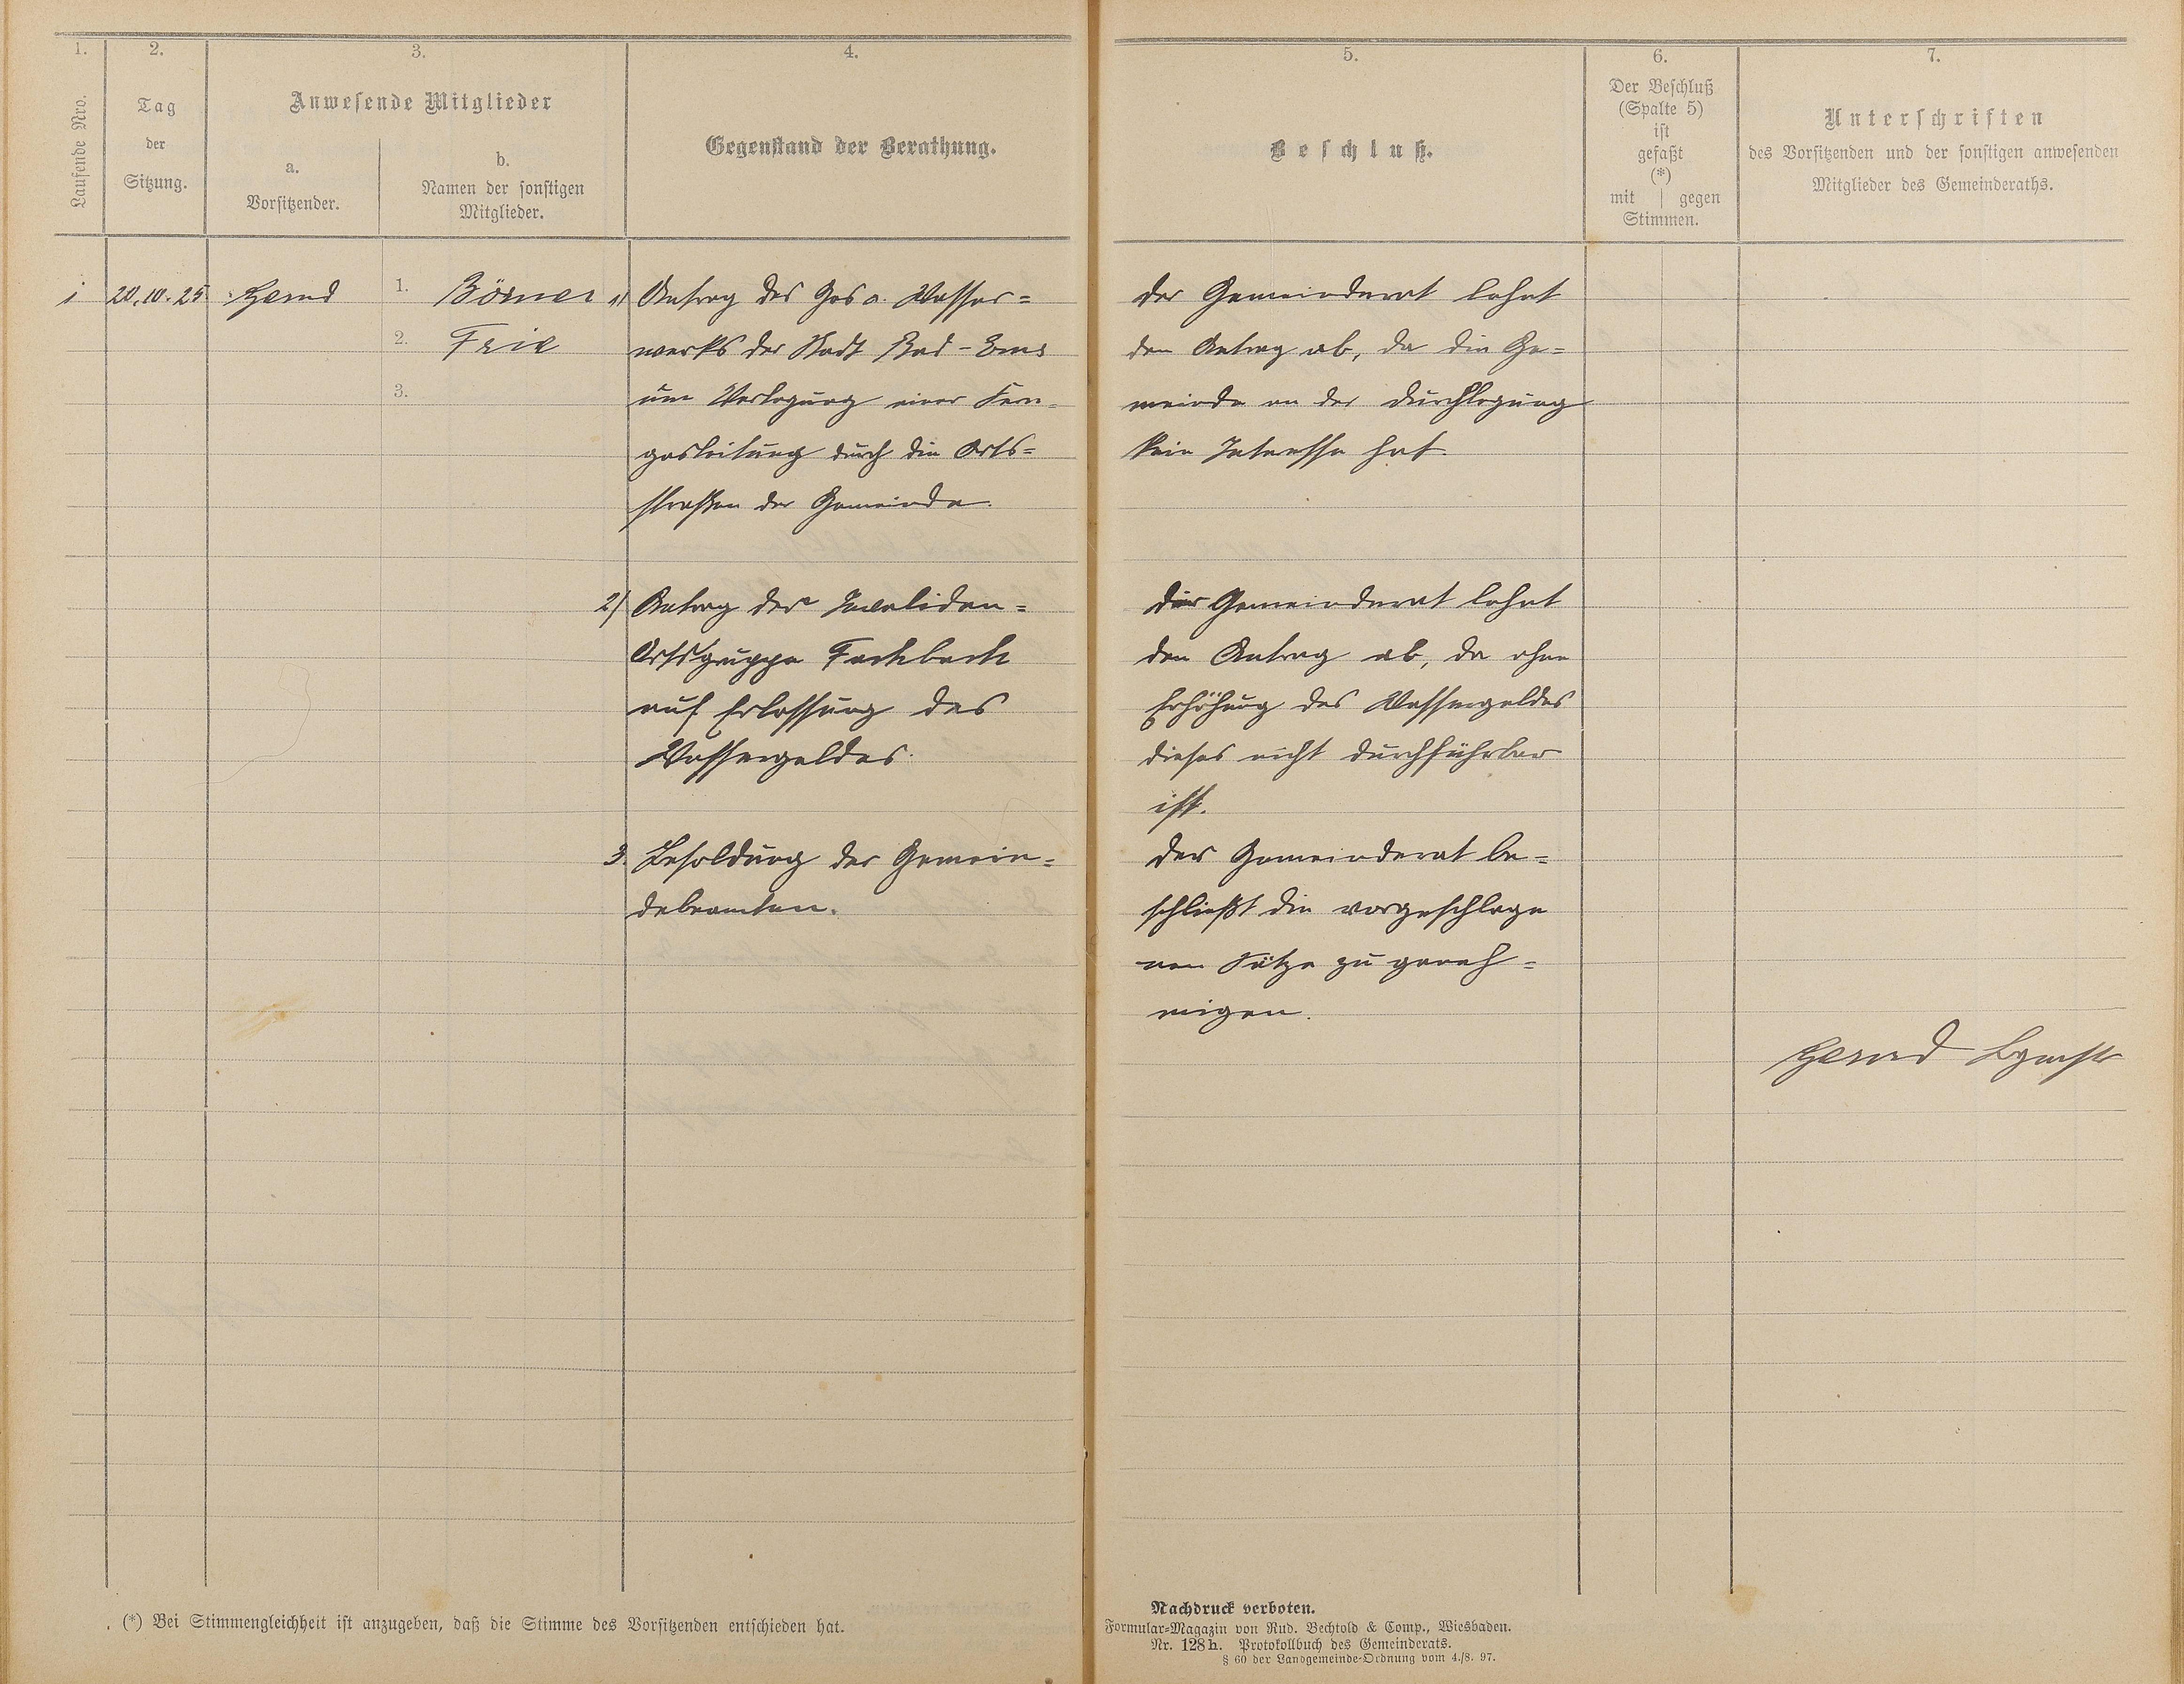 1.
2.
3.
4.
Laufende Nro.
Tag
der
Sitzung.
Anwesende Mitglieder
a.
Vorsitzender.
b.
Namen der sonstigen
Mitglieder.
Gegenstand der Berathung.
1 20.10.25
1. Börner
2. Frie
3.
1) Antrag des Gas u. Wasser=
werks der Stadt Bad-Ems
um Verlegung einer Fern-
gasleitung durch die Orts=
straßen der Gemeinde.
2) Antrag der Invaliden=
Ortsgruppe Fachbach
auf Erlassung des
Wassergeldes.
3. Besoldung der Gemein=
debeamten.
(*) Bei Stimmengleichheit ist anzugeben, daß die Stimme des Vorsitzenden entschieden hat.
5.
6.
7.
Beschluß.
Der Beschluß
(Spalte 5)
ist
gefaßt
(*)
mit | gegen
Stimmen.
Unterschriften
des Vorsitzenden und der sonstigen anwesenden
Mitglieder des Gemeinderaths.
Der Gemeinderat lehnt
den Antrag ab, da die Ge=
meinde an der Durchlegung
kein Interesse hat.
Der Gemeinderat lehnt
den Antrag ab, da ohne
Erhöhung des Wassergeldes
dieses nicht durchführbar
ist.
Der Gemeinderat be=
schließt die vorgeschlage
nen Sätze zu geneh=
migen.
Bgmstr
Nachdruck verboten.
Formular-Magazin von Rud. Bechtold & Comp., Wiesbaden.
Nr. 128h. Protokollbuch des Gemeinderats.
§ 60 der Landgemeinde-Ordnung vom 4./8. 97.